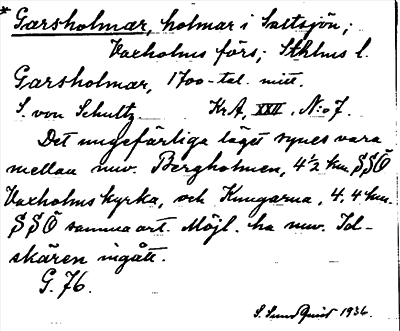 * Garsholmar, holmar i Saltsjön;
Vaxholms förs; Sthlms l.
Garsholmar, 1700-tal. mitt.
S. von Schultz KrA, XXII, N:o 7.
Det ungefärliga läget synes vara
mellan nuv. Bergholmen, 4 1/2 km. SSÖ
Vaxholms kyrka, och Kungarna, 4,4 km.
SSÖ samma ort. Möjl. ha nuv. Idl-
skären ingått.
G. 76.
S. Sundquist 1936.